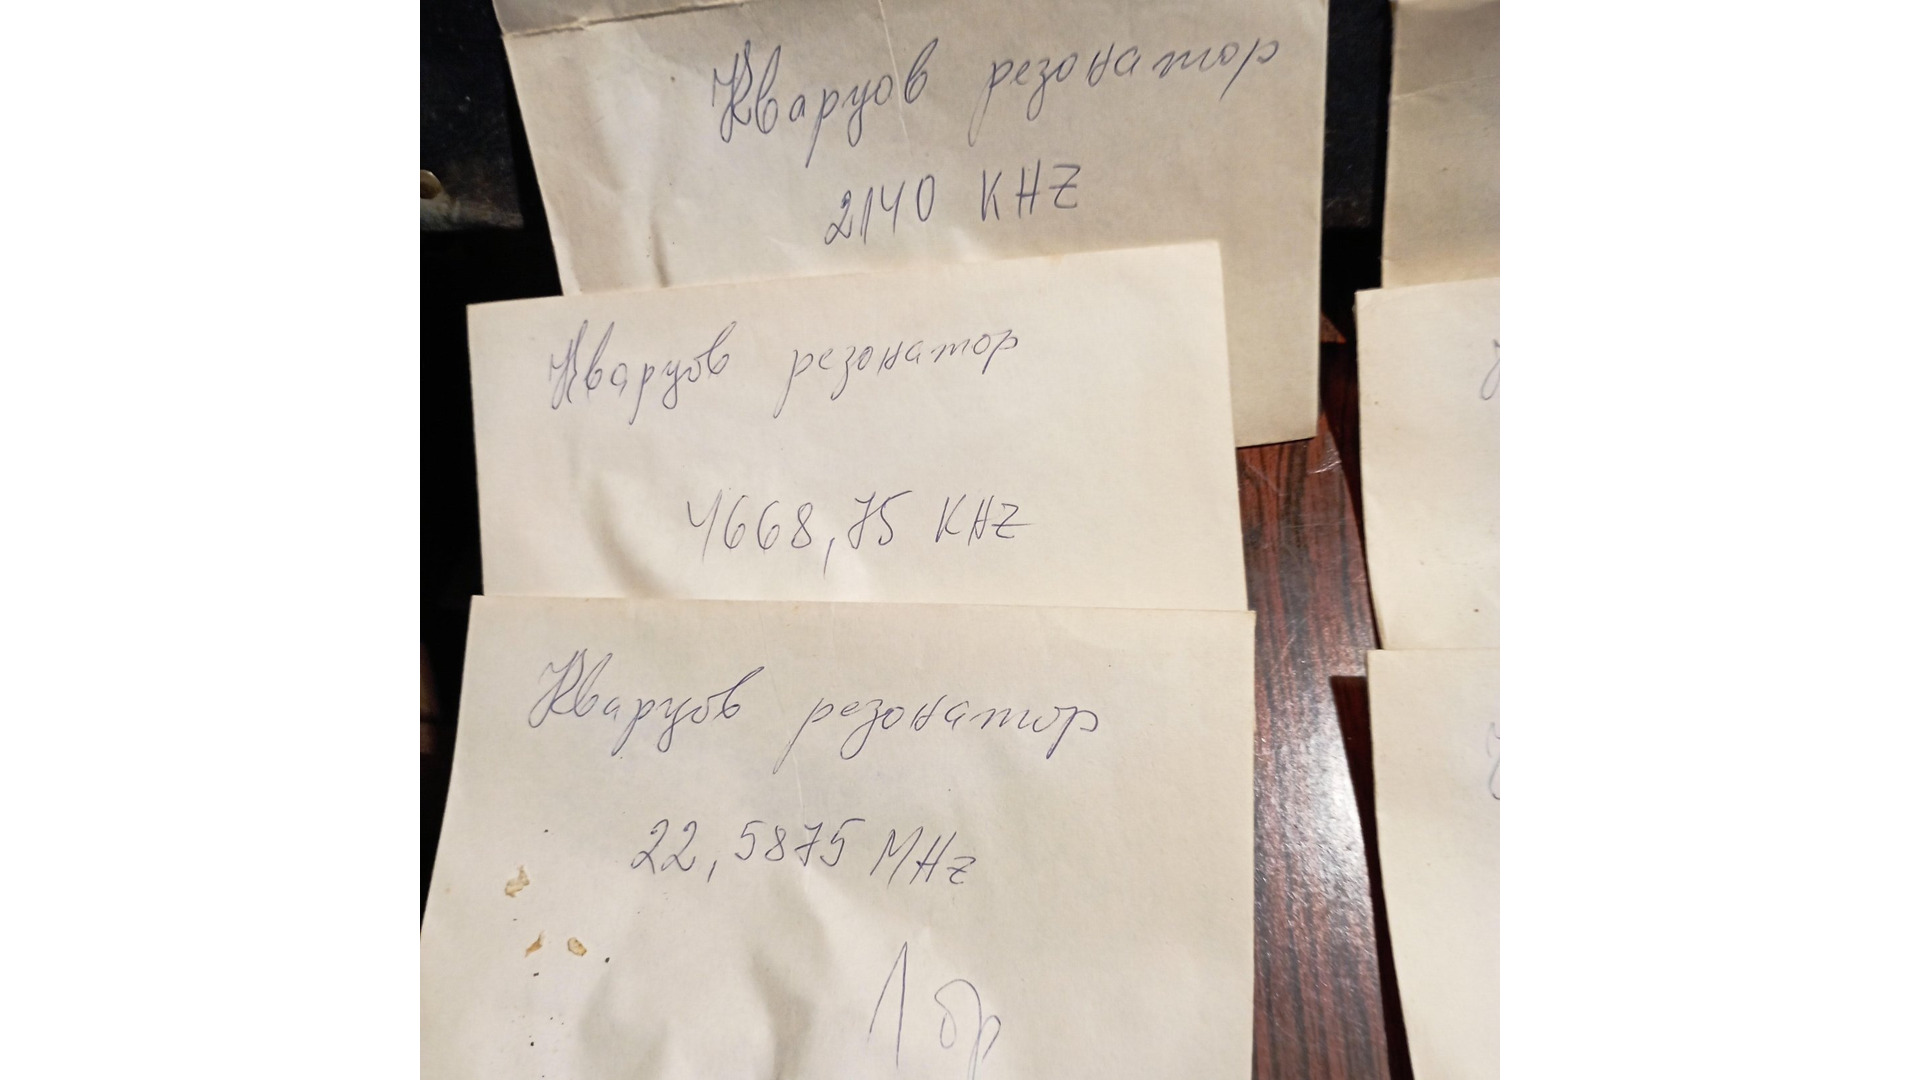 Кварцов резонатор
2140 KHZ
Кварцов резонатор
4668,75 KHZ
Кварцов резонатор
22,5875 MHz
1 бр